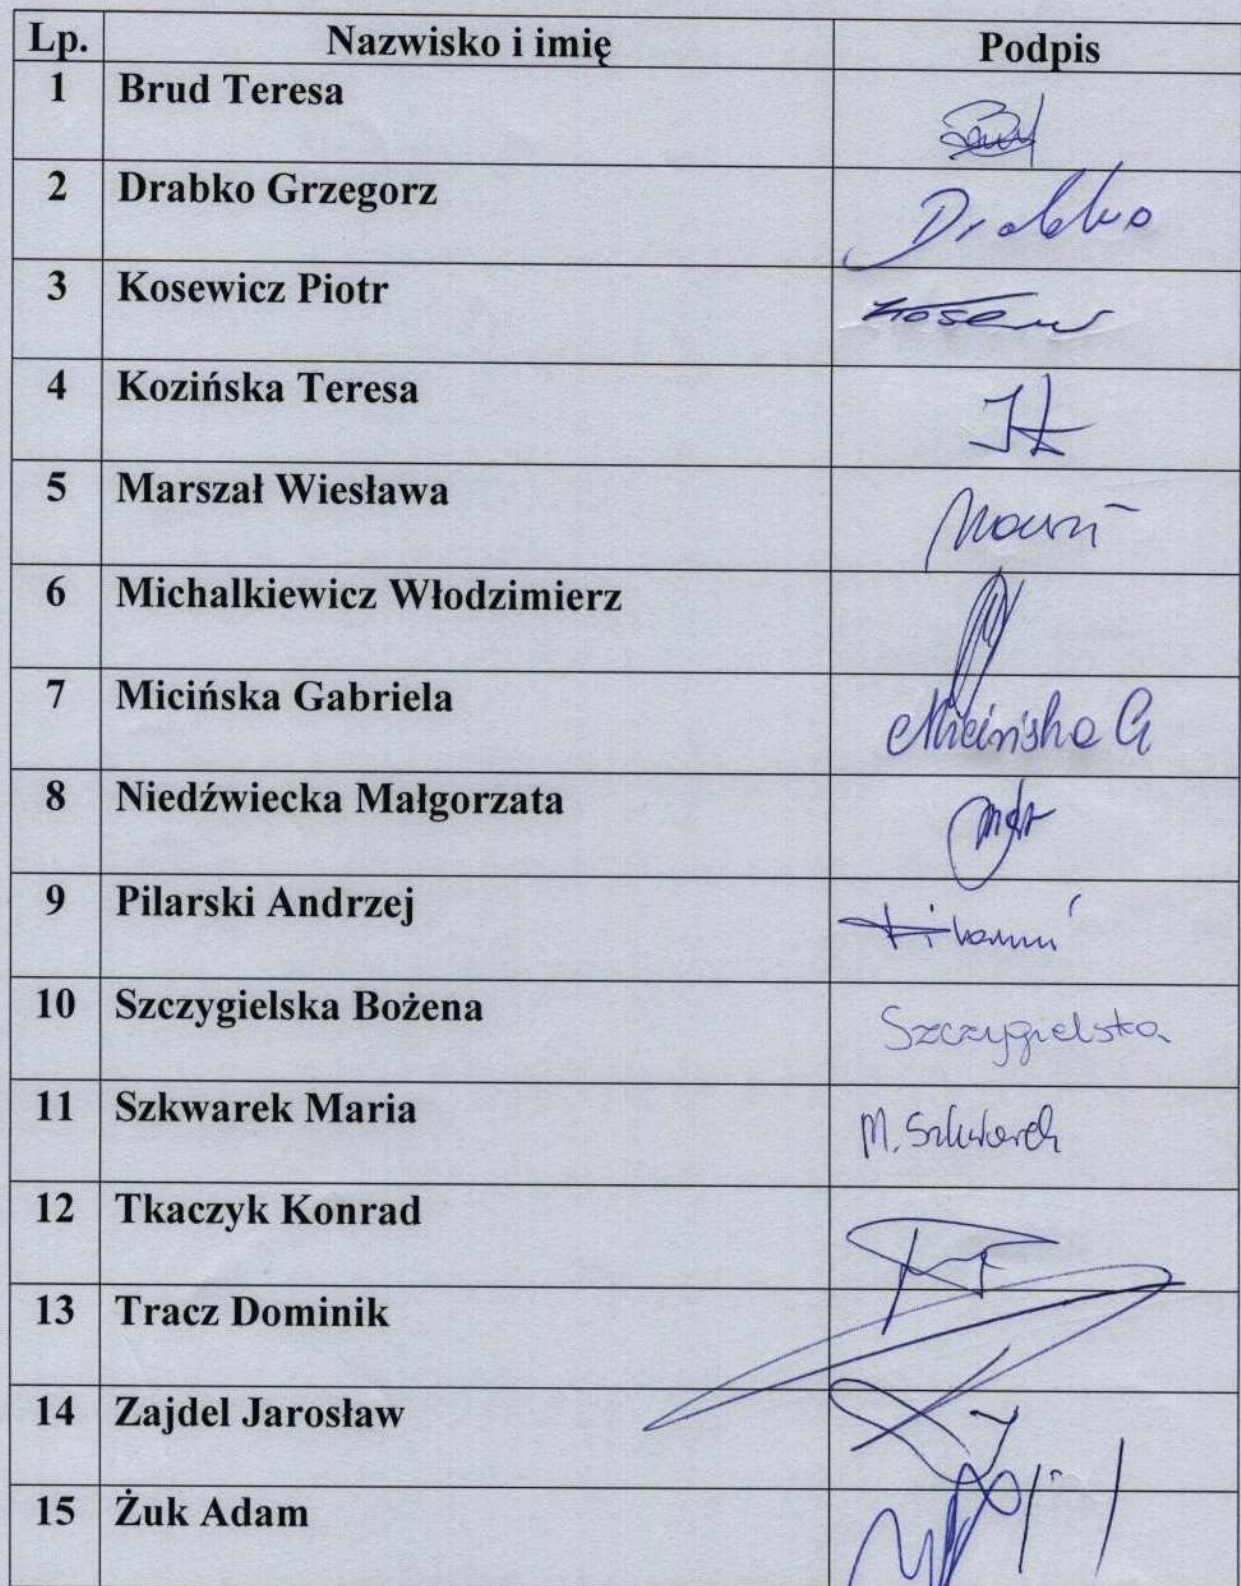 Lp. Nazwisko i imię Podpis
1 Brud Teresa
2 Drabko Grzegorz Drabko
3 Kosewicz Piotr
4 Kozińska Teresa
5 Marszał Wiesława
6 Michalkiewicz Włodzimierz
7 Micińska Gabriela Micińska G
8 Niedźwiecka Małgorzata
9 Pilarski Andrzej
10 Szczygielska Bożena Szczygielska
11 Szkwarek Maria M. Szkwarek
12 Tkaczyk Konrad
13 Tracz Dominik
14 Zajdel Jarosław
15 Żuk Adam